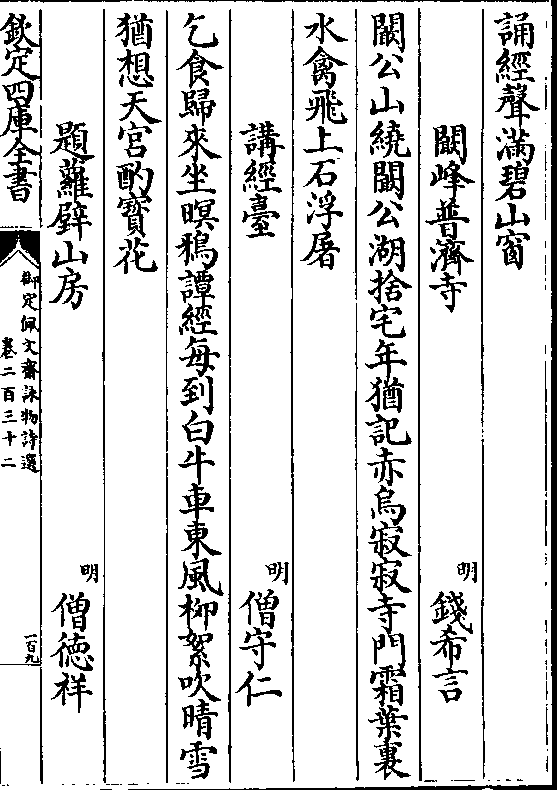 誦經聲滿碧山窗
闞峰普濟寺　明　錢希言
闞公山繞闞公湖捨宅年猶記赤烏寂寂寺門霜葉裏
水禽飛上石浮屠
講經臺　明　僧守仁
乞食歸來坐暝鴉譚經每到白牛車東風柳絮吹晴雪
猶想天宫酌寶花
題蘿壁山房　明　僧德祥
欽定四庫全書
御定佩文齋詠物詩選
卷二百三十二
一百九